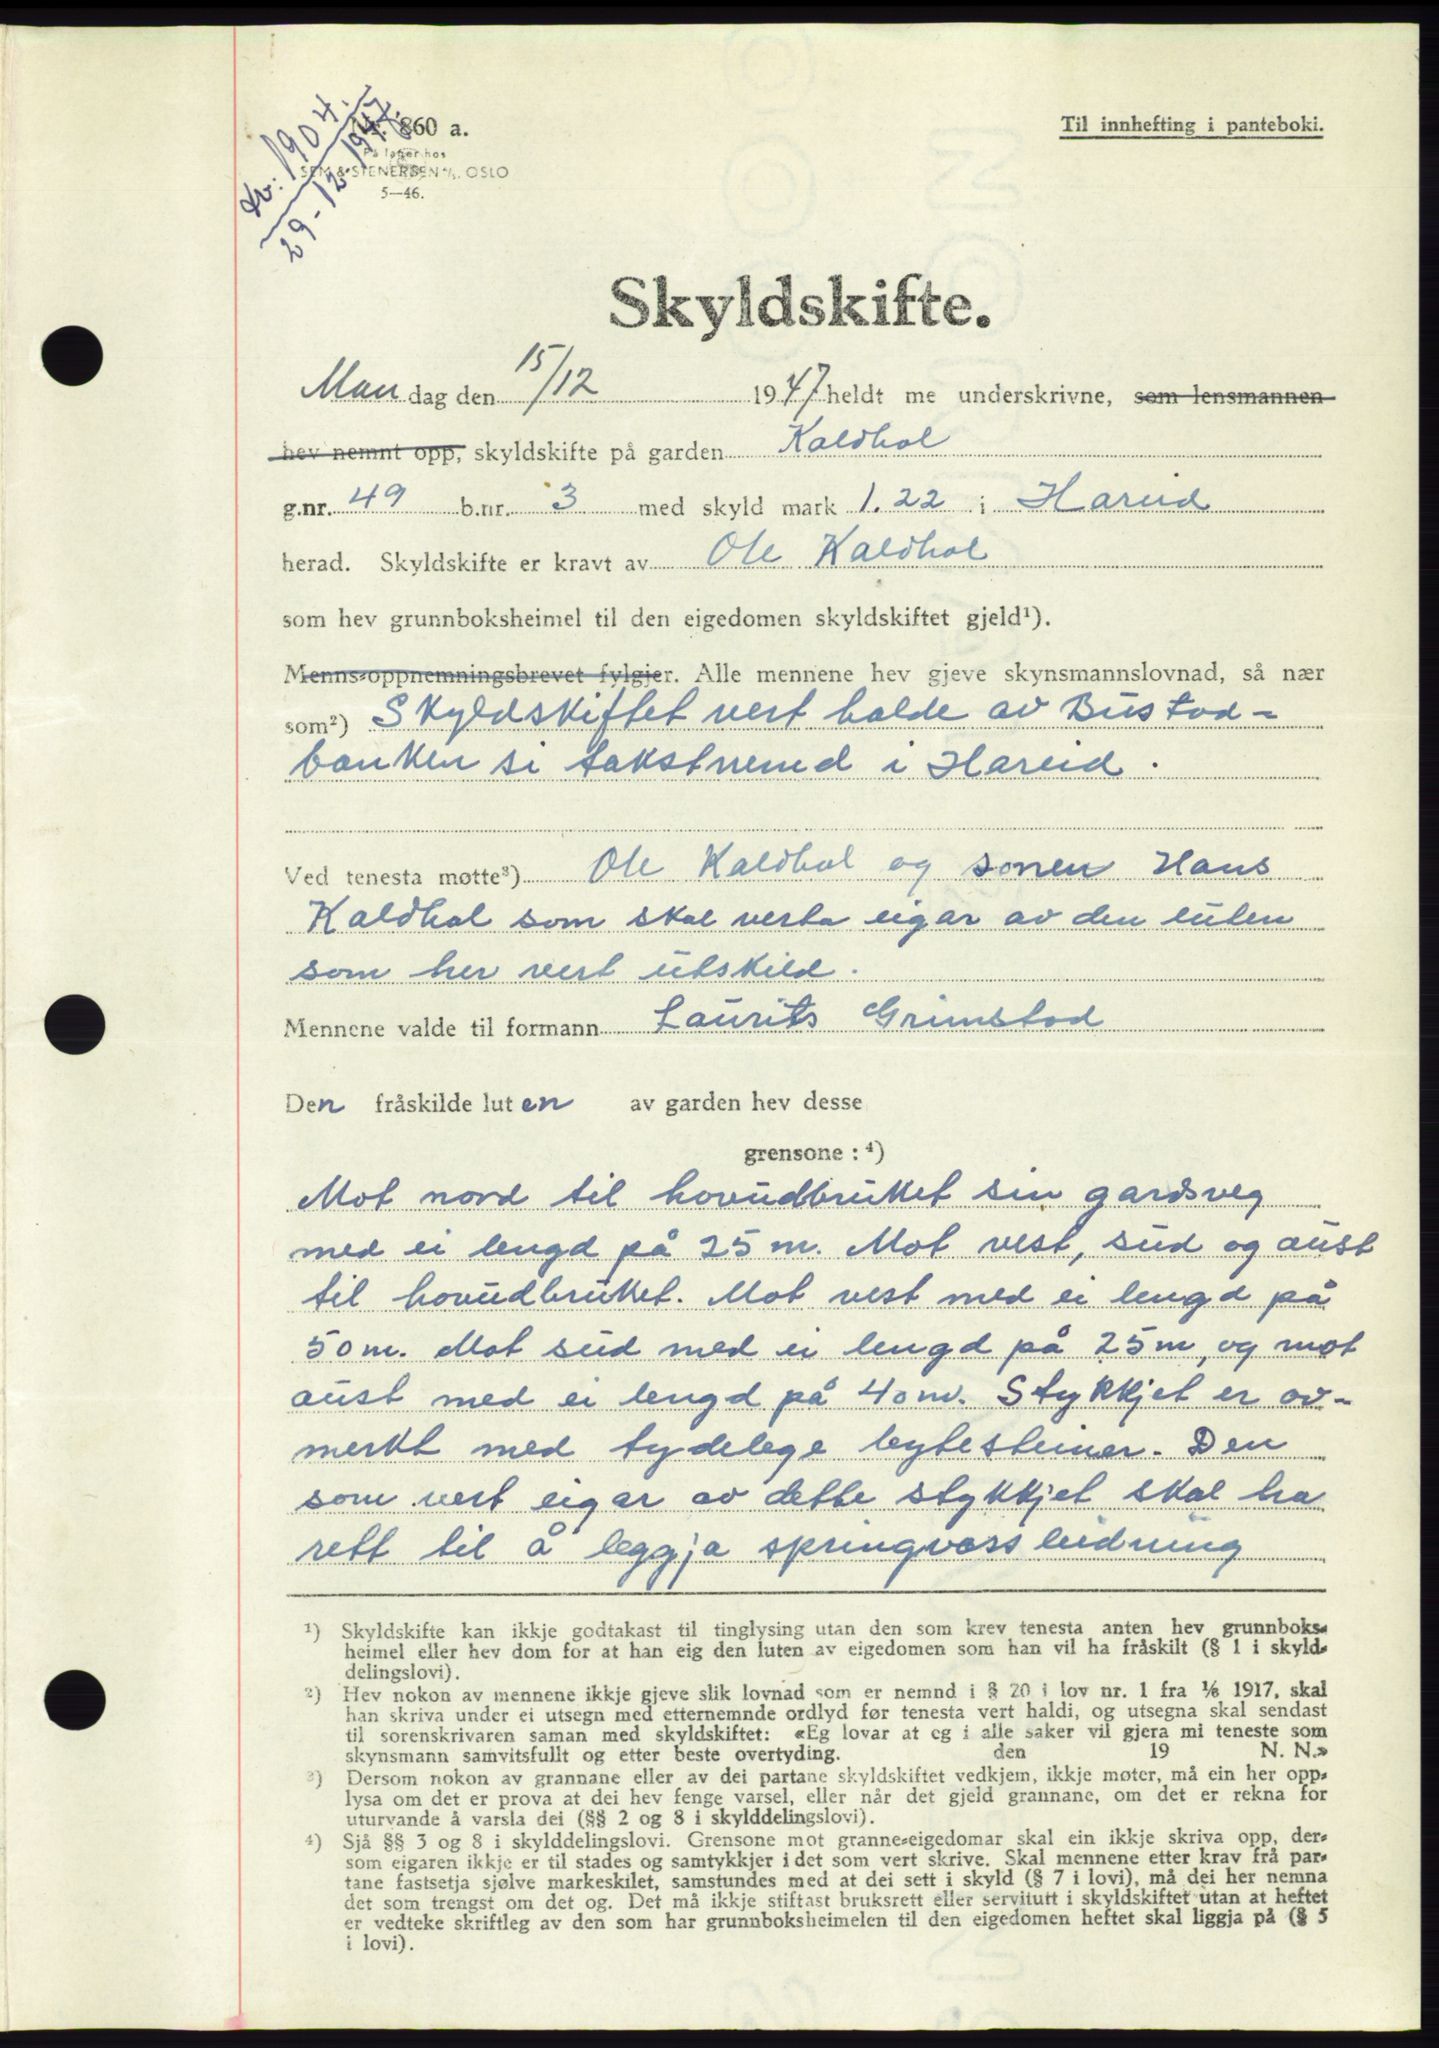 Kv: 1904.
29-12 1947
860 a.
På lager hos
SEM & STENERSEN A/S, OSLO
5—46.
Til innhefting i panteboki.
Skyldskifte.
Man dag den 15/12 1947 heldt me underskrivne, som lensmannen
hev nemnt opp, skyldskifte på garden Kaldhol
g.nr. 49 b.nr. 3 med skyld mark 1.22 i Hareid
herad. Skyldskifte er kravt av Ole Kaldhol
som hev grunnboksheimel til den eigedomen skyldskiftet gjeld¹).
Menns-oppnemningsbrevet fylgjer. Alle mennene hev gjeve skynsmannslovnad, så nær
som²) Skyldskiftet vert halde av Bustad-
banken si takstnemd i Hareid.
Ved tenesta møtte³) Ole Kaldhol og sonen Hans
Kaldhol som skal verta eigar av den luten
som her vert utskild.
Mennene valde til formann Laurits Grimstad
Den fråskilde luten av garden hev desse
grensone : ⁴)
Mot nord til hovudbruket sin gardsveg
med ei lengd på 25 m. Mot vest, sud og aust
til hovudbruket. Mot vest med ei lengd på
50 m. Mot sud med ei lengd på 25 m, og mot
aust med ei lengd på 40 m. Stykkjet er av-
merkt med tydelege bytesteiner. Den
som vert eigar av dette stykkjet skal ha
rett til å leggja springvassleidning
¹) Skyldskifte kan ikkje godtakast til tinglysing utan den som krev tenesta anten hev grunnboks-
heimel eller hev dom for at han eig den luten av eigedomen som han vil ha fråskilt (§ 1 i skyld-
delingslovi).
²) Hev nokon av mennene ikkje gjeve slik lovnad som er nemnd i § 20 i lov nr. 1 fra 1/6 1917, skal
han skriva under ei utsegn med etternemnde ordlyd før tenesta vert haldi, og utsegna skal sendast
til sorenskrivaren saman med skyldskiftet: «Eg lovar at eg i alle saker vil gjera mi teneste som
skynsmann samvitsfullt og etter beste overtyding. den 19 N. N.»
³) Dersom nokon av grannane eller av dei partane skyldskiftet vedkjem, ikkje møter, må ein her opp-
lysa om det er prova at dei hev fenge varsel, eller når det gjeld grannane, om det er rekna for
uturvande å varsla dei (§§ 2 og 8 i skylddelingslovi).
⁴) Sjå §§ 3 og 8 i skylddelingslovi. Grensone mot granne-eigedomar skal ein ikkje skriva opp, der-
som eigaren ikkje er til stades og samtykkjer i det som vert skrive. Skal mennene etter krav frå par-
tane fastsetja sjølve markeskilet, samstundes med at dei sett i skyld (§ 7 i lovi), må dei her nemna
det som trengst om det og. Det må ikkje stiftast bruksrett eller servitutt i skyldskiftet utan at heftet
er vedteke skriftleg av den som har grunnboksheimelen til den eigedomen heftet skal liggja på (§ 5
i lovi).